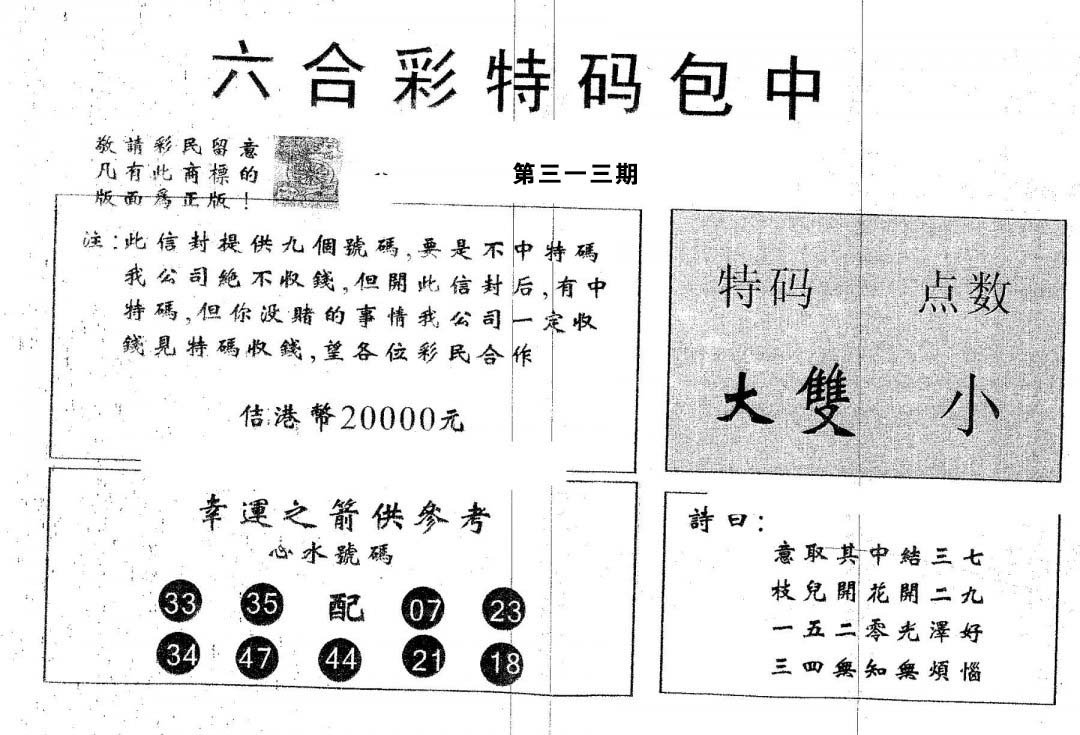 六合彩特码包中
敬請彩民留意
凡有此商標的
版面爲正版！
第三一三期
注：此信封提供九個號碼，要是不中特碼
我公司絶不收錢，但開此信封后，有中
特碼，但你没賭的事情我公司一定收
錢見特碼收錢，望各位彩民合作
佶港幣20000元
特码 点数
大雙 小
幸運之箭供參考
心水號碼
33 35 配 07 23
34 47 44 21 18
詩曰：
意取其中結三七
枝兒開花開二九
一五二零光澤好
三四無知無煩惱